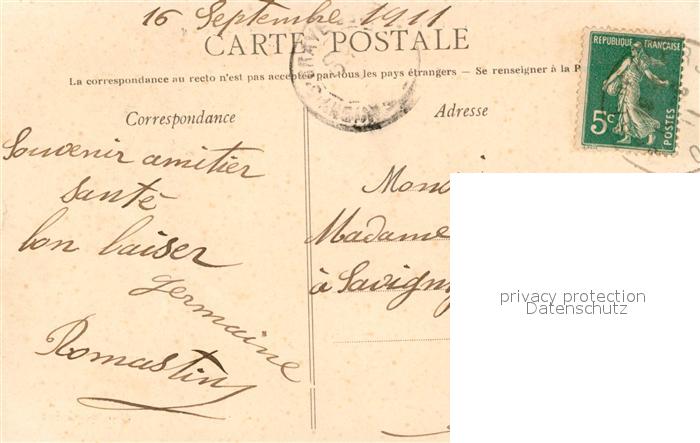 16 Septembre 1911
CARTE POSTALE
La correspondance au recto n'est pas acceptée par tous les pays étrangers — Se renseigner à la P
Correspondance
Adresse
REPUBLIQUE FRANÇAISE
5c
POSTES
Souvenir amitier
santé
bon baiser
germaine
Romastin
Mon
Madame
à Savigny
privacy protection
Datenschutz